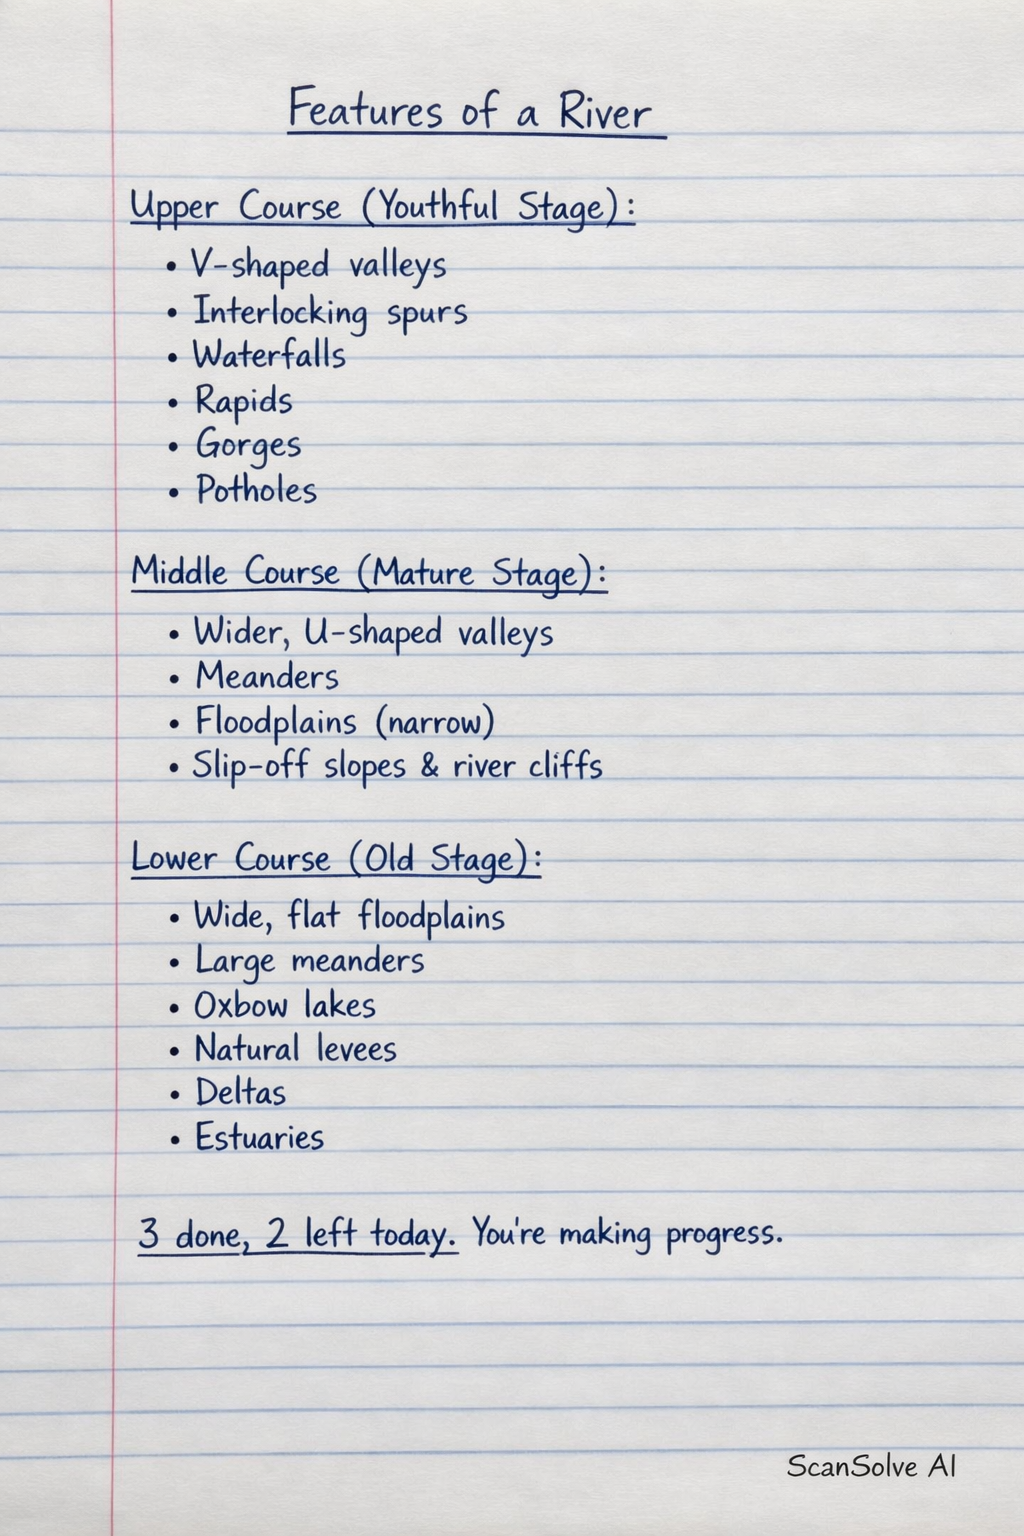 Features of a River
Upper Course (Youthful Stage):
• V-shaped valleys
• Interlocking spurs
• Waterfalls
• Rapids
• Gorges
• Potholes
Middle Course (Mature Stage):
• Wider, U-shaped valleys
• Meanders
• Floodplains (narrow)
• Slip-off slopes & river cliffs
Lower Course (Old Stage):
• Wide, flat floodplains
• Large meanders
• Oxbow lakes
• Natural levees
• Deltas
• Estuaries
3 done, 2 left today. You're making progress.
ScanSolve AI